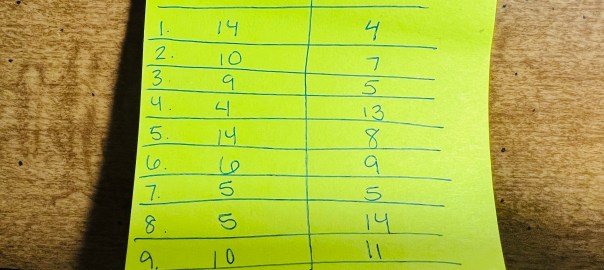 1. 14 4
2. 10 7
3. 9 5
4. 4 13
5. 14 8
6. 6 9
7. 5 5
8. 5 14
9. 10 11